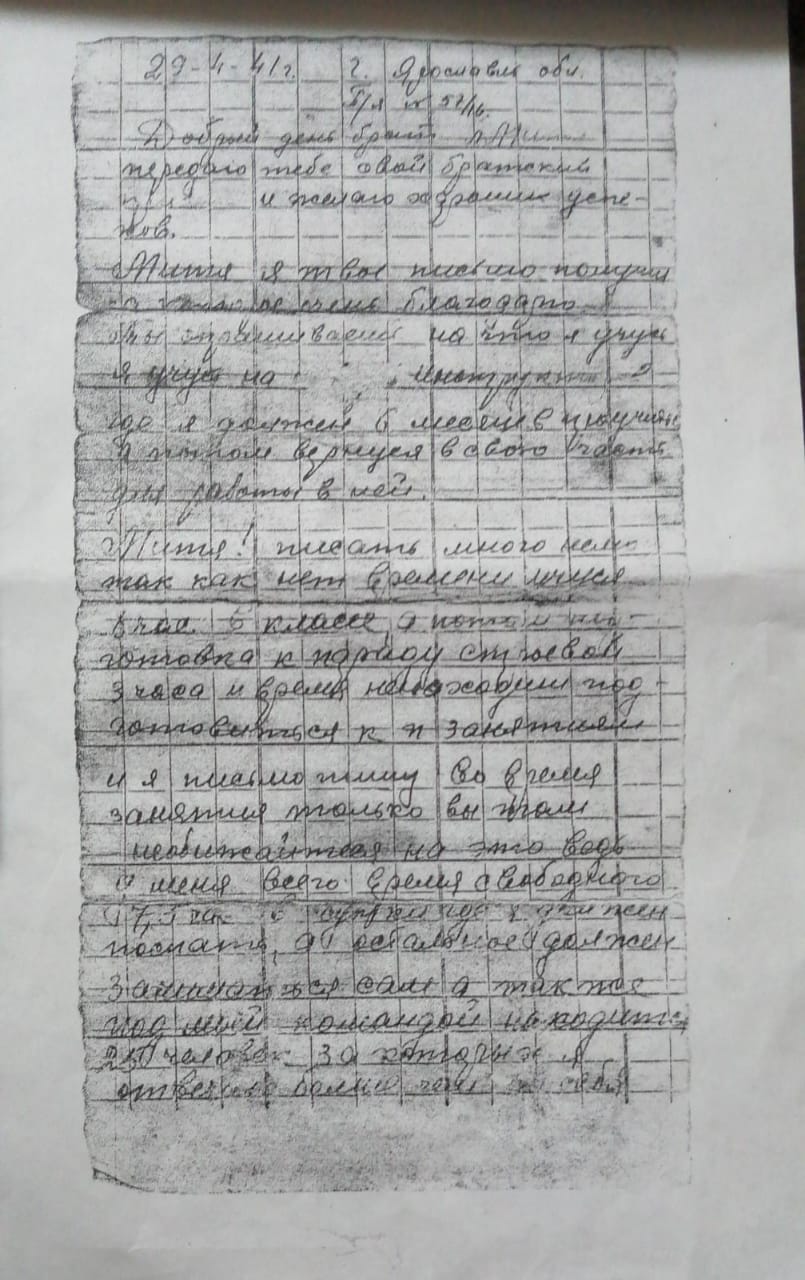 29-4-41 г. г. Ярославль обл.
П/я №
Добрый день брат Митя
передаю тебе свой братский
и желаю хороших успе-
хов.
Митя я твое письмо получил
за которое очень благодарю
Ты спрашиваеш на что я учусь
я учусь на
где я должен 6 месяцев проучить
а потом вернуся в свою часть
для работы в ней.
Митя! писать много нечего
так как нет времени учимся
8 час. в классе а потом под-
готовка к параду строевой
3 часа и время ненаходим под-
готовиться к занятиям
и я письмо пишу во время
занятия только вы
необижайтеся на это ведь
у меня всего время свободного
7,5 час в сутки где я должен
поспать, а остальное должен
заниматься сам а так же
под моей командой находится
человек за которых я
отвечаю больше чем за себя